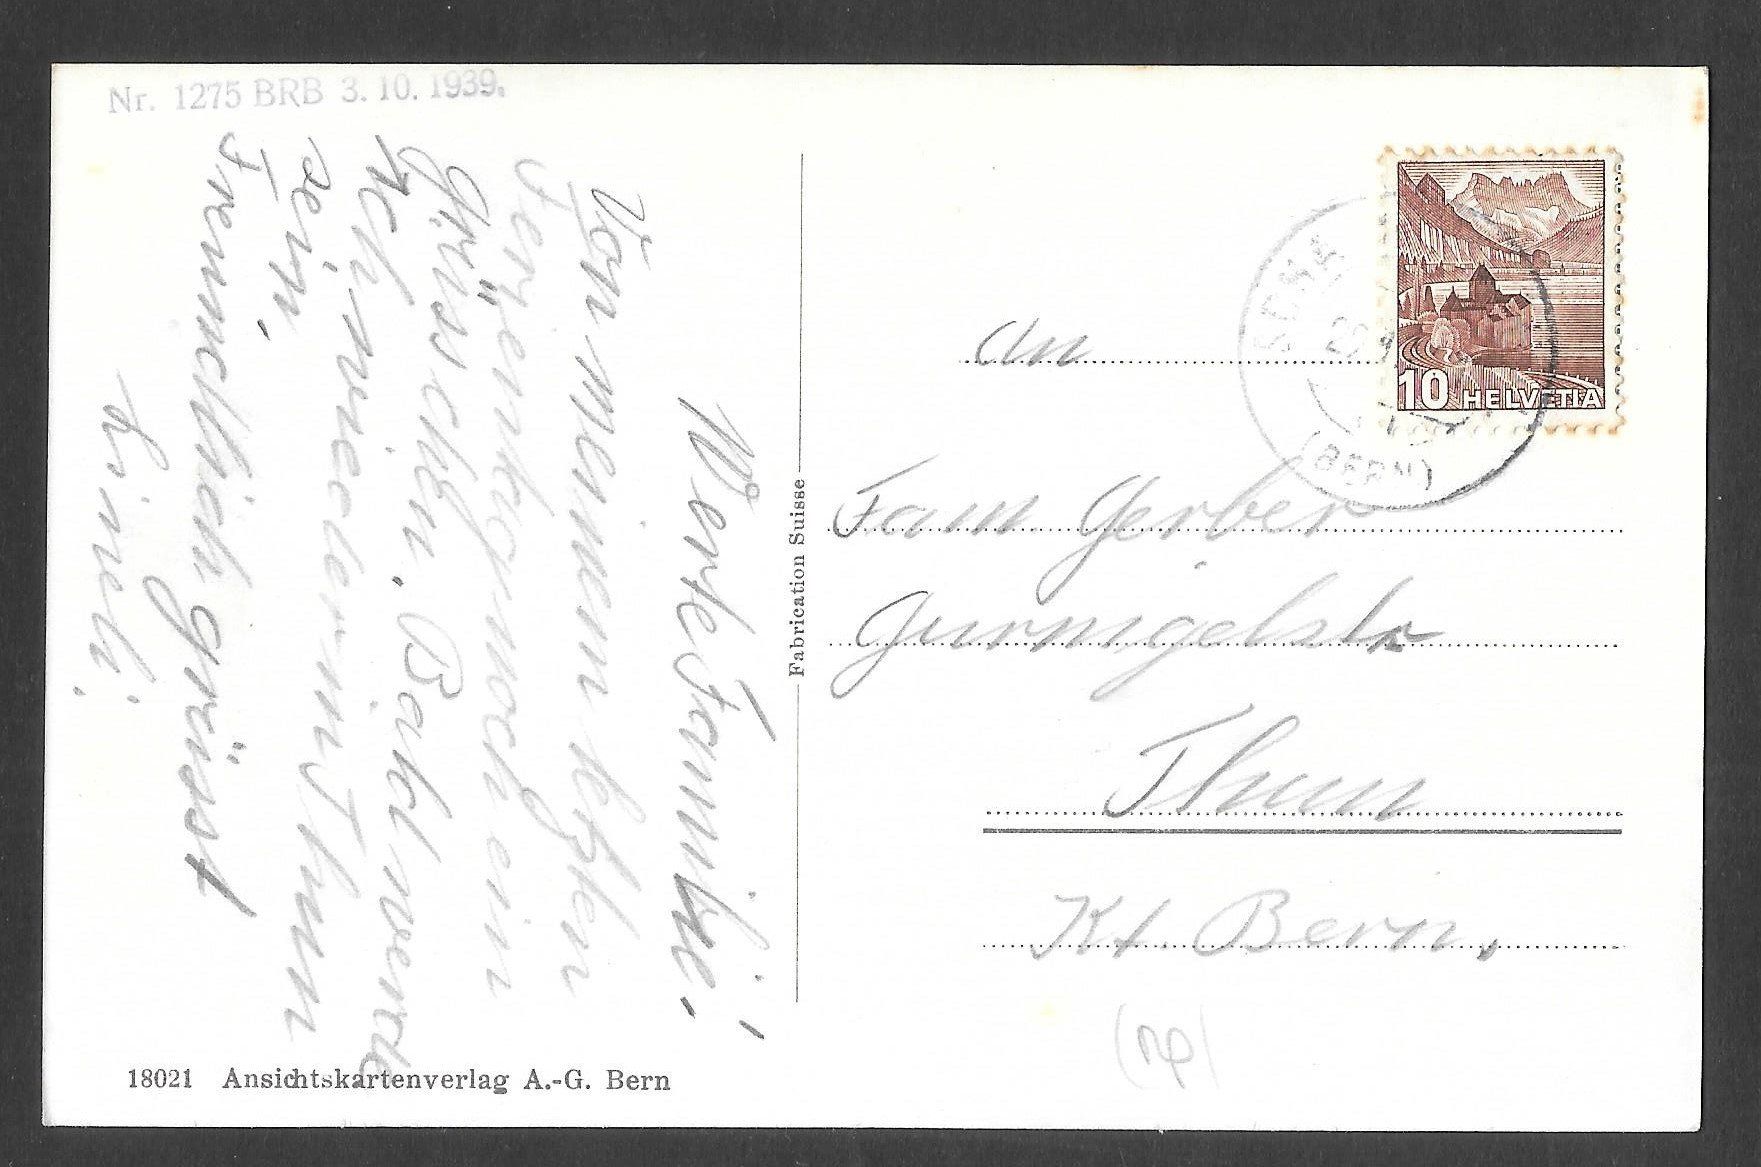 Nr. 1275 BRB 3. 10. 1939.
Werte Familie!
Von meinem letzten
Ferientag noch ein
Grüsschen, Bald werde
ich wieder in Thun
sein,
Freundlich grüsst
Lineli,
18021 Ansichtskartenverlag A.-G. Bern
Fabrication Suisse
10 HELVETIA
(BERN)
An
Fam Gerber
Gurnigelstr
Thun
Kt. Bern.